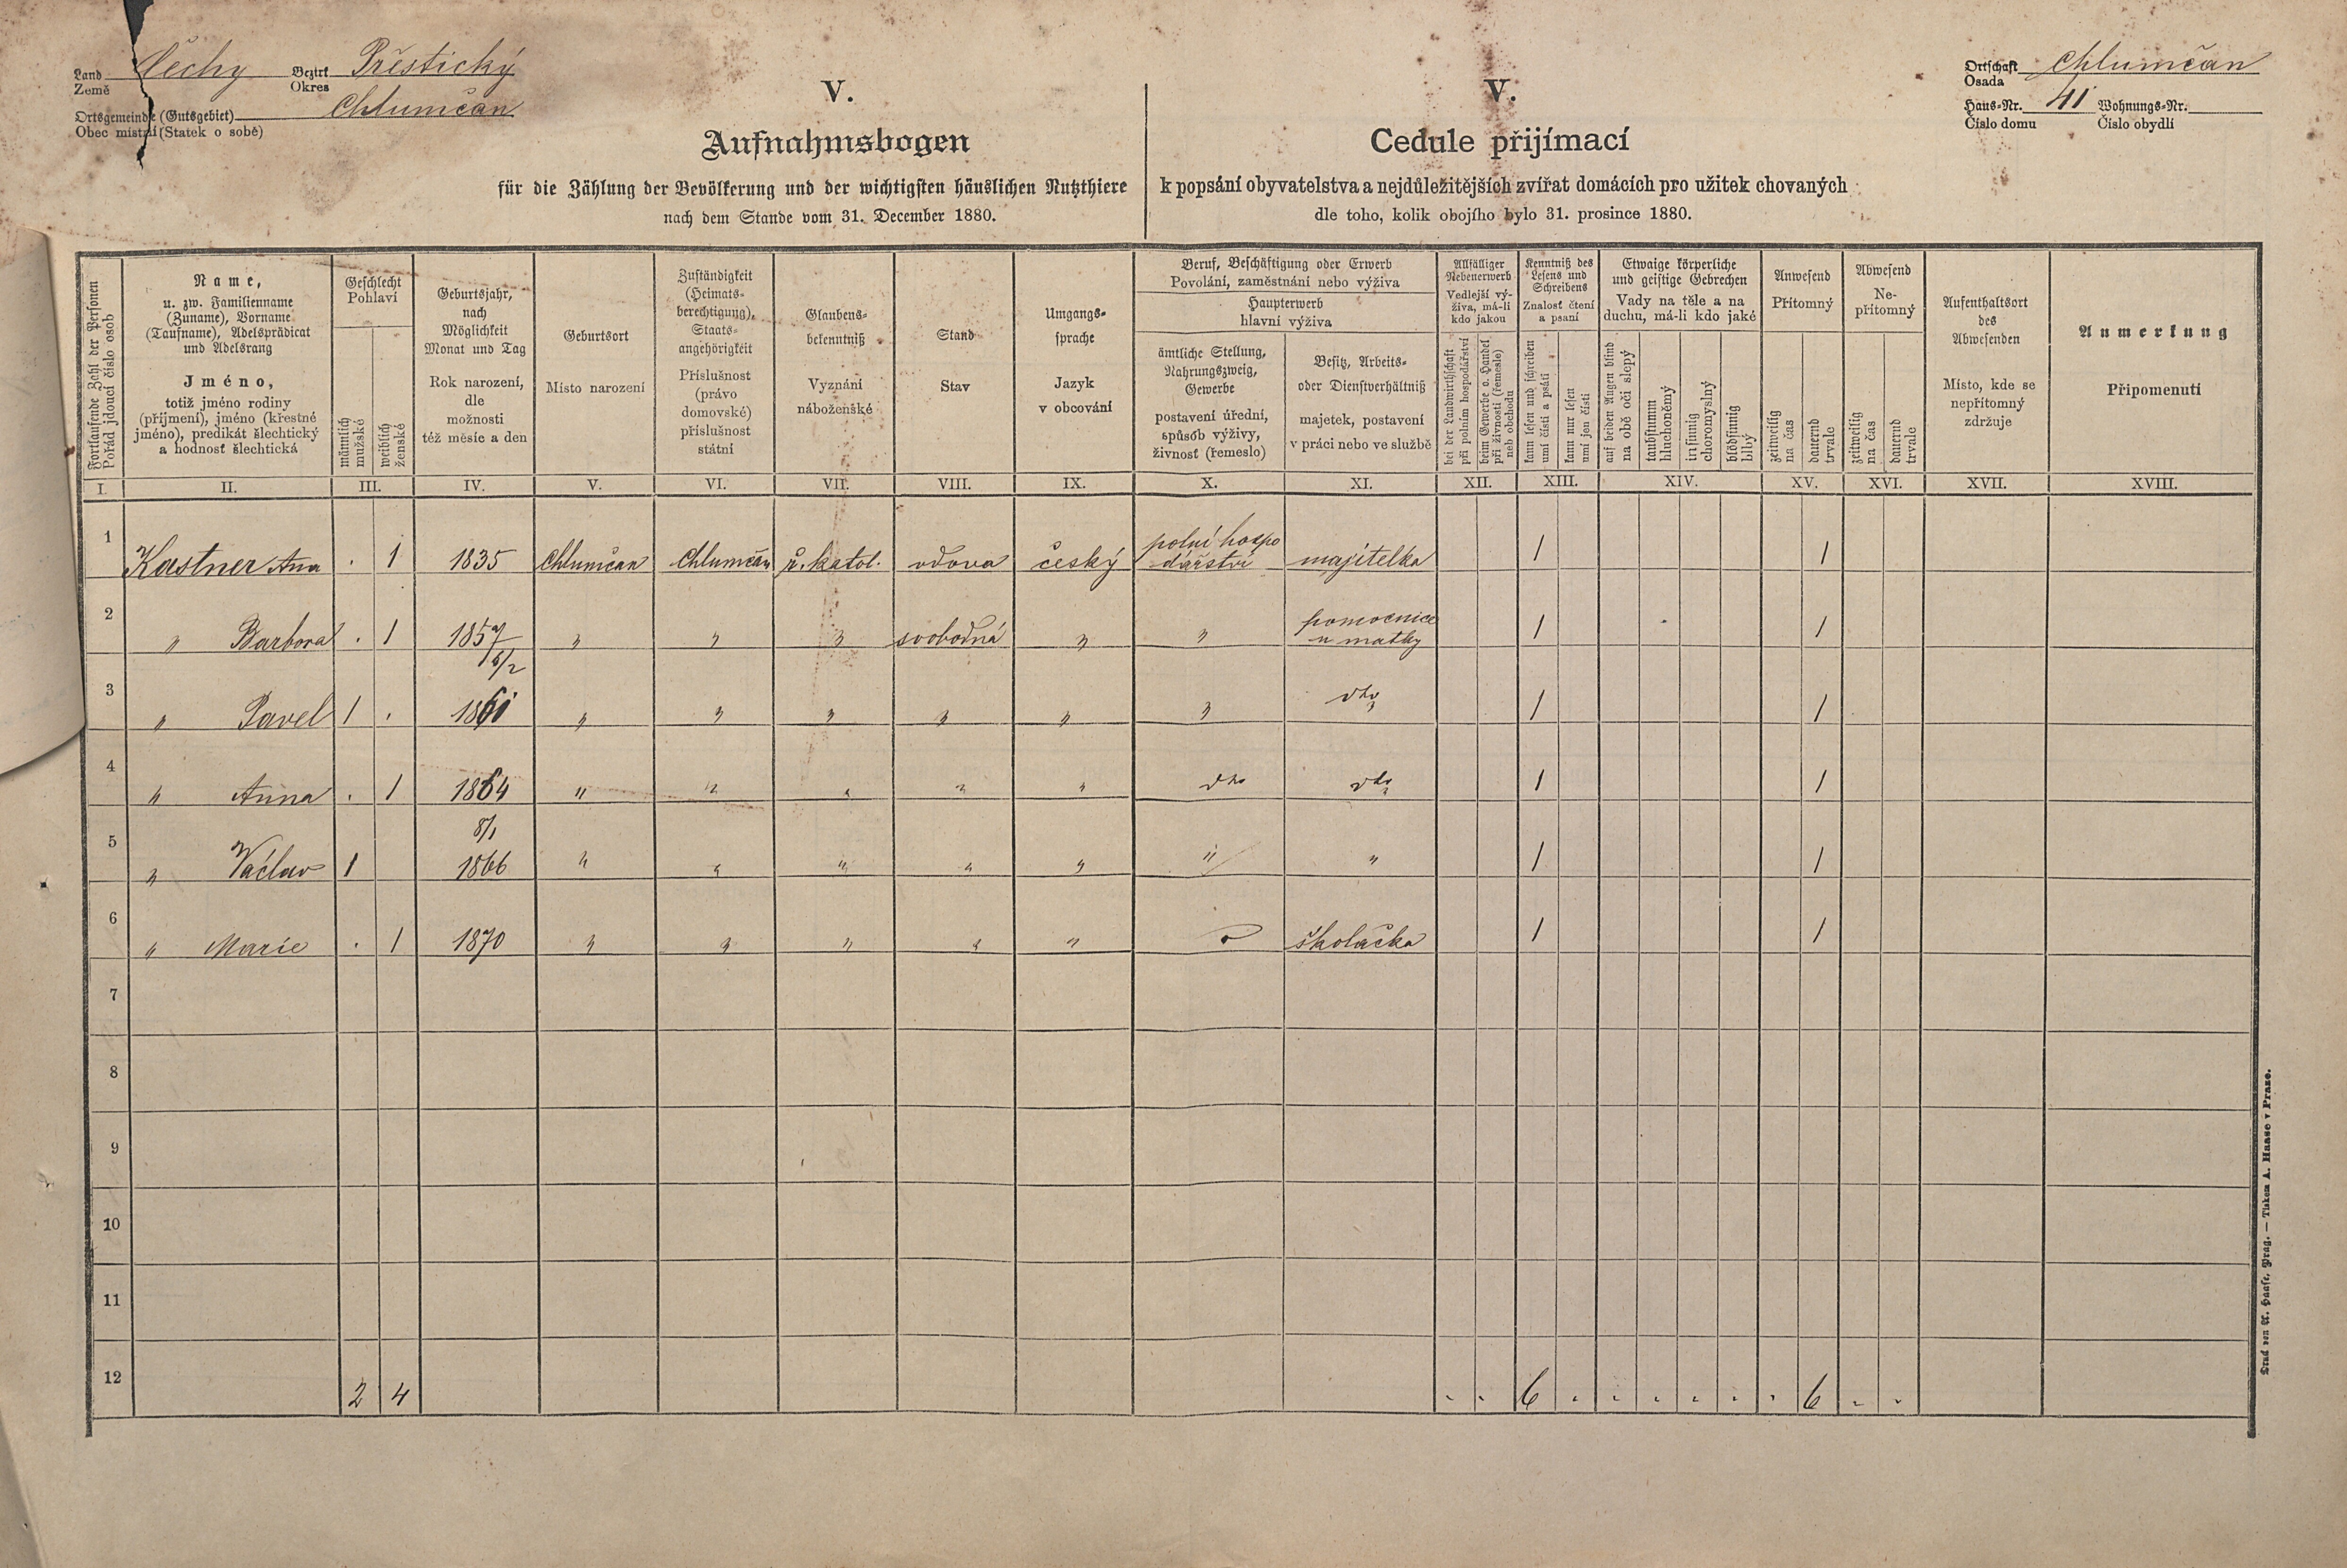 Land Čechy Bezirk Přestický
Země Okres
Ortsgemeinde (Gutsgebiet) Chlumčan
Obec místní (Statek o sobě)
V.
Aufnahmsbogen
für die Zählung der Bevölkerung und der wichtigsten häuslichen Nutzthiere
nach dem Stande vom 31. December 1880.
V.
Cedule přijímací
k popsání obyvatelstva a nejdůležitějších zvířat domácích pro užitek chovaných
dle toho, kolik obojího bylo 31. prosince 1880.
Ortschaft Chlumčan
Osada
Haus-Nr. 41 Wohnungs-Nr.
Číslo domu Číslo obydlí
Fortlaufende Zahl der Personen
Pořád jdoucí číslo osob
Name,
u. zw. Familienname
(Zuname), Vorname
(Taufname), Adelsprädicat
und Adelsrang
Jméno,
totiž jméno rodiny
(příjmení), jméno (křestné
jméno), predikát šlechtický
a hodnosť šlechtická
Geschlecht
Pohlaví
männlich
mužské
weiblich
ženské
Geburtsjahr,
nach
Möglichkeit
Monat und Tag
Rok narození,
dle
možnosti
též měsíc a den
Geburtsort
Místo narození
Zuständigkeit
(Heimats-
berechtigung),
Staats-
angehörigkeit
Příslušnost
(právo
domovské)
příslušnost
státní
Glaubens-
bekenntniß
Vyznání
náboženské
Stand
Stav
Umgangs-
sprache
Jazyk
v obcování
Beruf, Beschäftigung oder Erwerb
Povolání, zaměstnání nebo výživa
Haupterwerb
hlavní výživa
ämtliche Stellung,
Nahrungszweig,
Gewerbe
postavení úřední,
spůsob výživy,
živnosť (řemeslo)
Besitz, Arbeits-
oder Dienstverhältniß
majetek, postavení
v práci nebo ve službě
Allfälliger
Nebenerwerb
Vedlejší vý-
živa, má-li
kdo jakou
bei der Landwirthschaft
při polním hospodářství
beim Gewerbe o. Handel
při živnosti (řemesle)
neb obchodu
Kenntniß des
Lesens und
Schreibens
Znalosť čtení
a psaní
kann lesen und schreiben
umí čísti a psáti
kann nur lesen
umí jen čísti
Etwaige körperliche
und geistige Gebrechen
Vady na těle a na
duchu, má-li kdo jaké
auf beiden Augen blind
na obě oči slepý
taubstumm
hluchoněmý
irrsinnig
choromyslný
blödsinnig
blbý
Anwesend
Přítomný
zeitweilig
na čas
dauernd
trvale
Abwesend
Ne-
přítomný
zeitweilig
na čas
dauernd
trvale
Aufenthaltsort
des
Abwesenden
Místo, kde se
nepřítomný
zdržuje
Anmerkung
Připomenutí
I. II. III. IV. V. VI. VII. VIII. IX. X. XI. XII. XIII. XIV. XV. XVI. XVII. XVIII.
1 Kastner Ana . 1 1835 Chlumčan Chlumčan ř. katol. vdova český polní hospodářství majitelka / /
2 " Barbora . 1 1857 " " " svobodná " " pomocnice u matky / /
3 " Pavel 1 . 6/2 1861 " " " " " " dto / /
4 " Anna . 1 1864 " " " " " dto dto / /
5 " Václav 1 8/1 1866 " " " " " " " / /
6 " Marie . 1 1870 " " " " " školačka / /
7
8
9
10
11
12 2 4 . . 6 . . . . . . 6 . .
Druck von A. Haase, Prag. — Tiskem A. Haase v Praze.